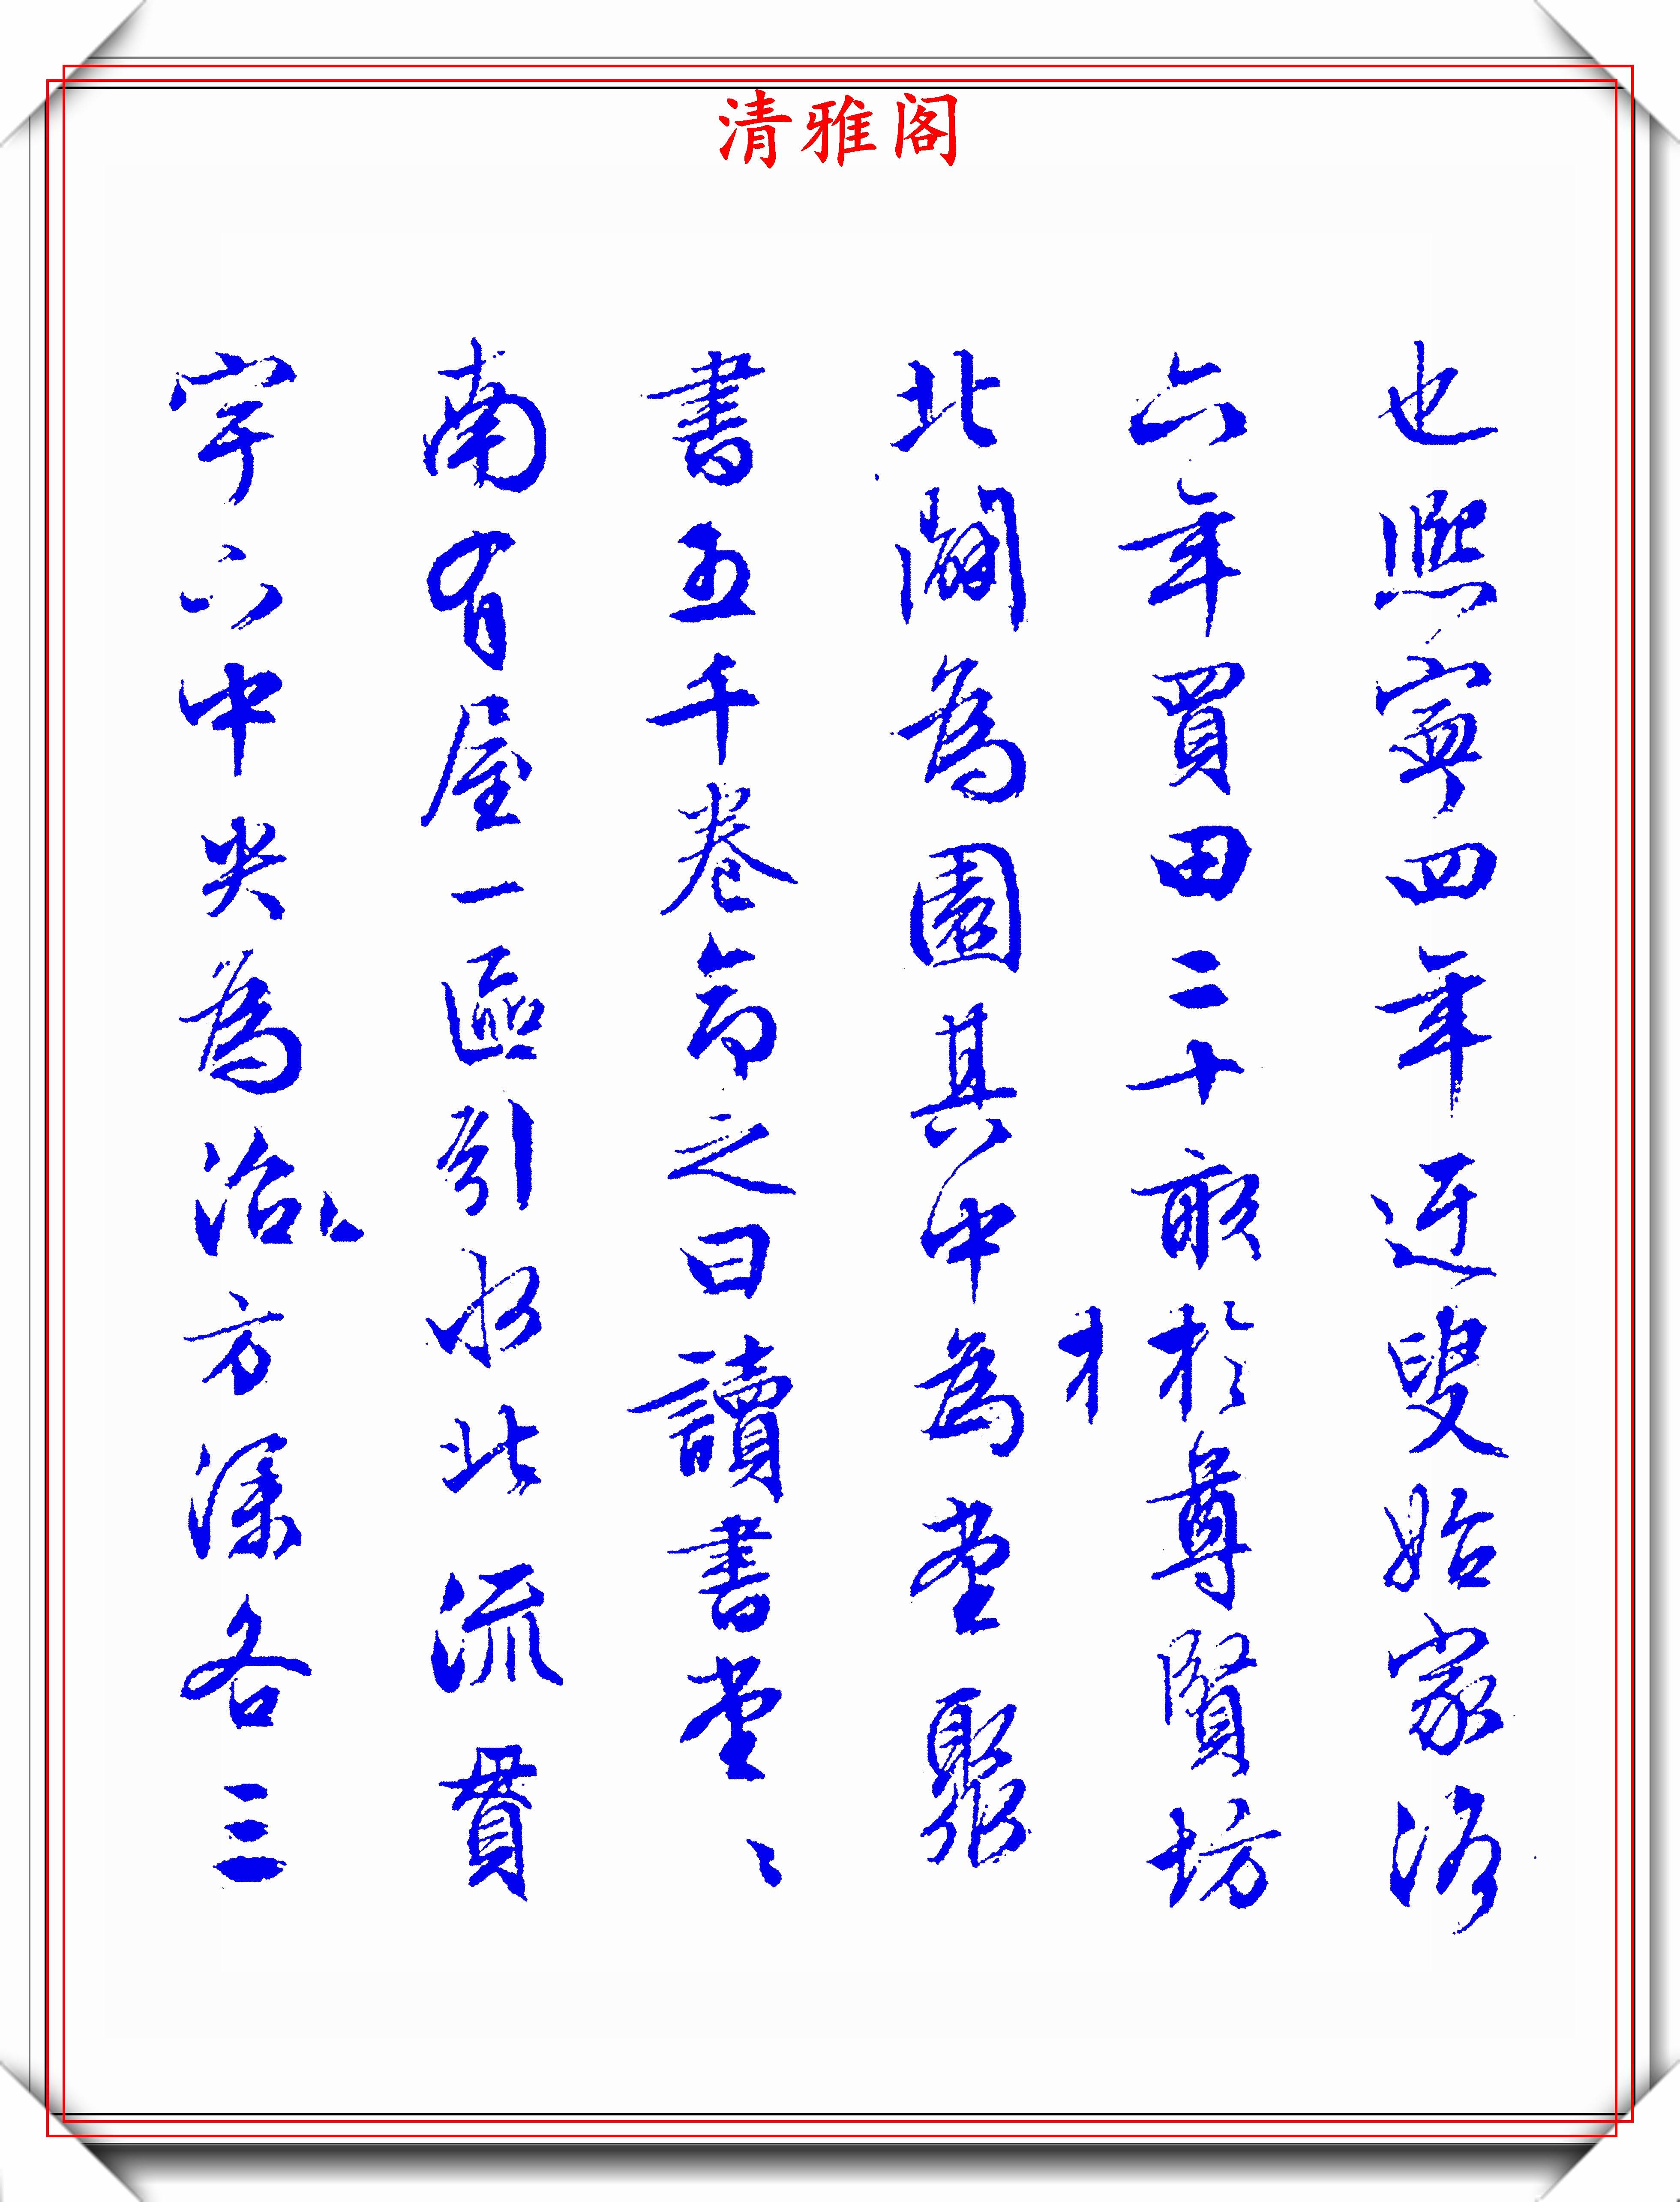 清雅阁
也熙寧四年迂叟始家洛
六年買田二十畝於尊賢坊
北闢為園其中為堂聚
書五千卷命之曰讀書堂、
南有屋一區引水北流貫
宇下中央為沼方深各三